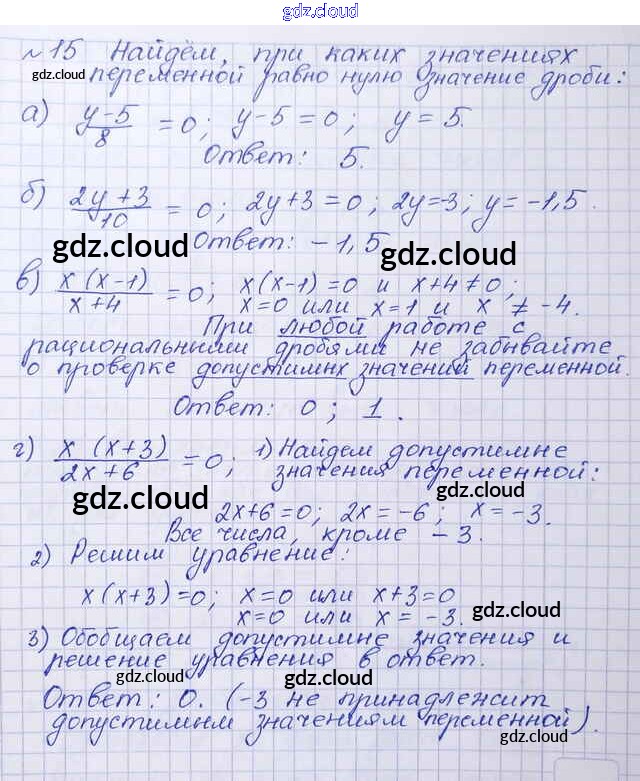 gdz.cloud
№ 15 Найдём, при каких значениях
gdz.cloud переменной равно нулю значение дроби: gdz.cloud
а) (y-5)/8 = 0; y-5=0; y=5.
Ответ: 5.
б) (2y+3)/10 = 0; 2y+3=0; 2y=-3; y=-1,5.
gdz.cloud Ответ: -1,5 gdz.cloud
в) (x(x-1))/(x+4) = 0; x(x-1)=0 и x+4≠0;
x=0 или x=1 и x ≠ -4.
При любой работе с
рациональными дробями не забывайте
о проверке допустимых значений переменной.
Ответ: 0; 1.
г) (x(x+3))/(2x+6) = 0; 1) Найдем допустимые
значения переменной:
gdz.cloud gdz.cloud
2x+6=0; 2x=-6; x=-3.
Все числа, кроме -3.
2) Решим уравнение:
x(x+3)=0; x=0 или x+3=0
x=0 или x=-3. gdz.cloud
3) Обобщаем допустимые значения и
решение уравнения в ответ.
gdz.cloud gdz.cloud
Ответ: 0. (-3 не принадлежит
допустимым значениям переменной).
gdz.cloud